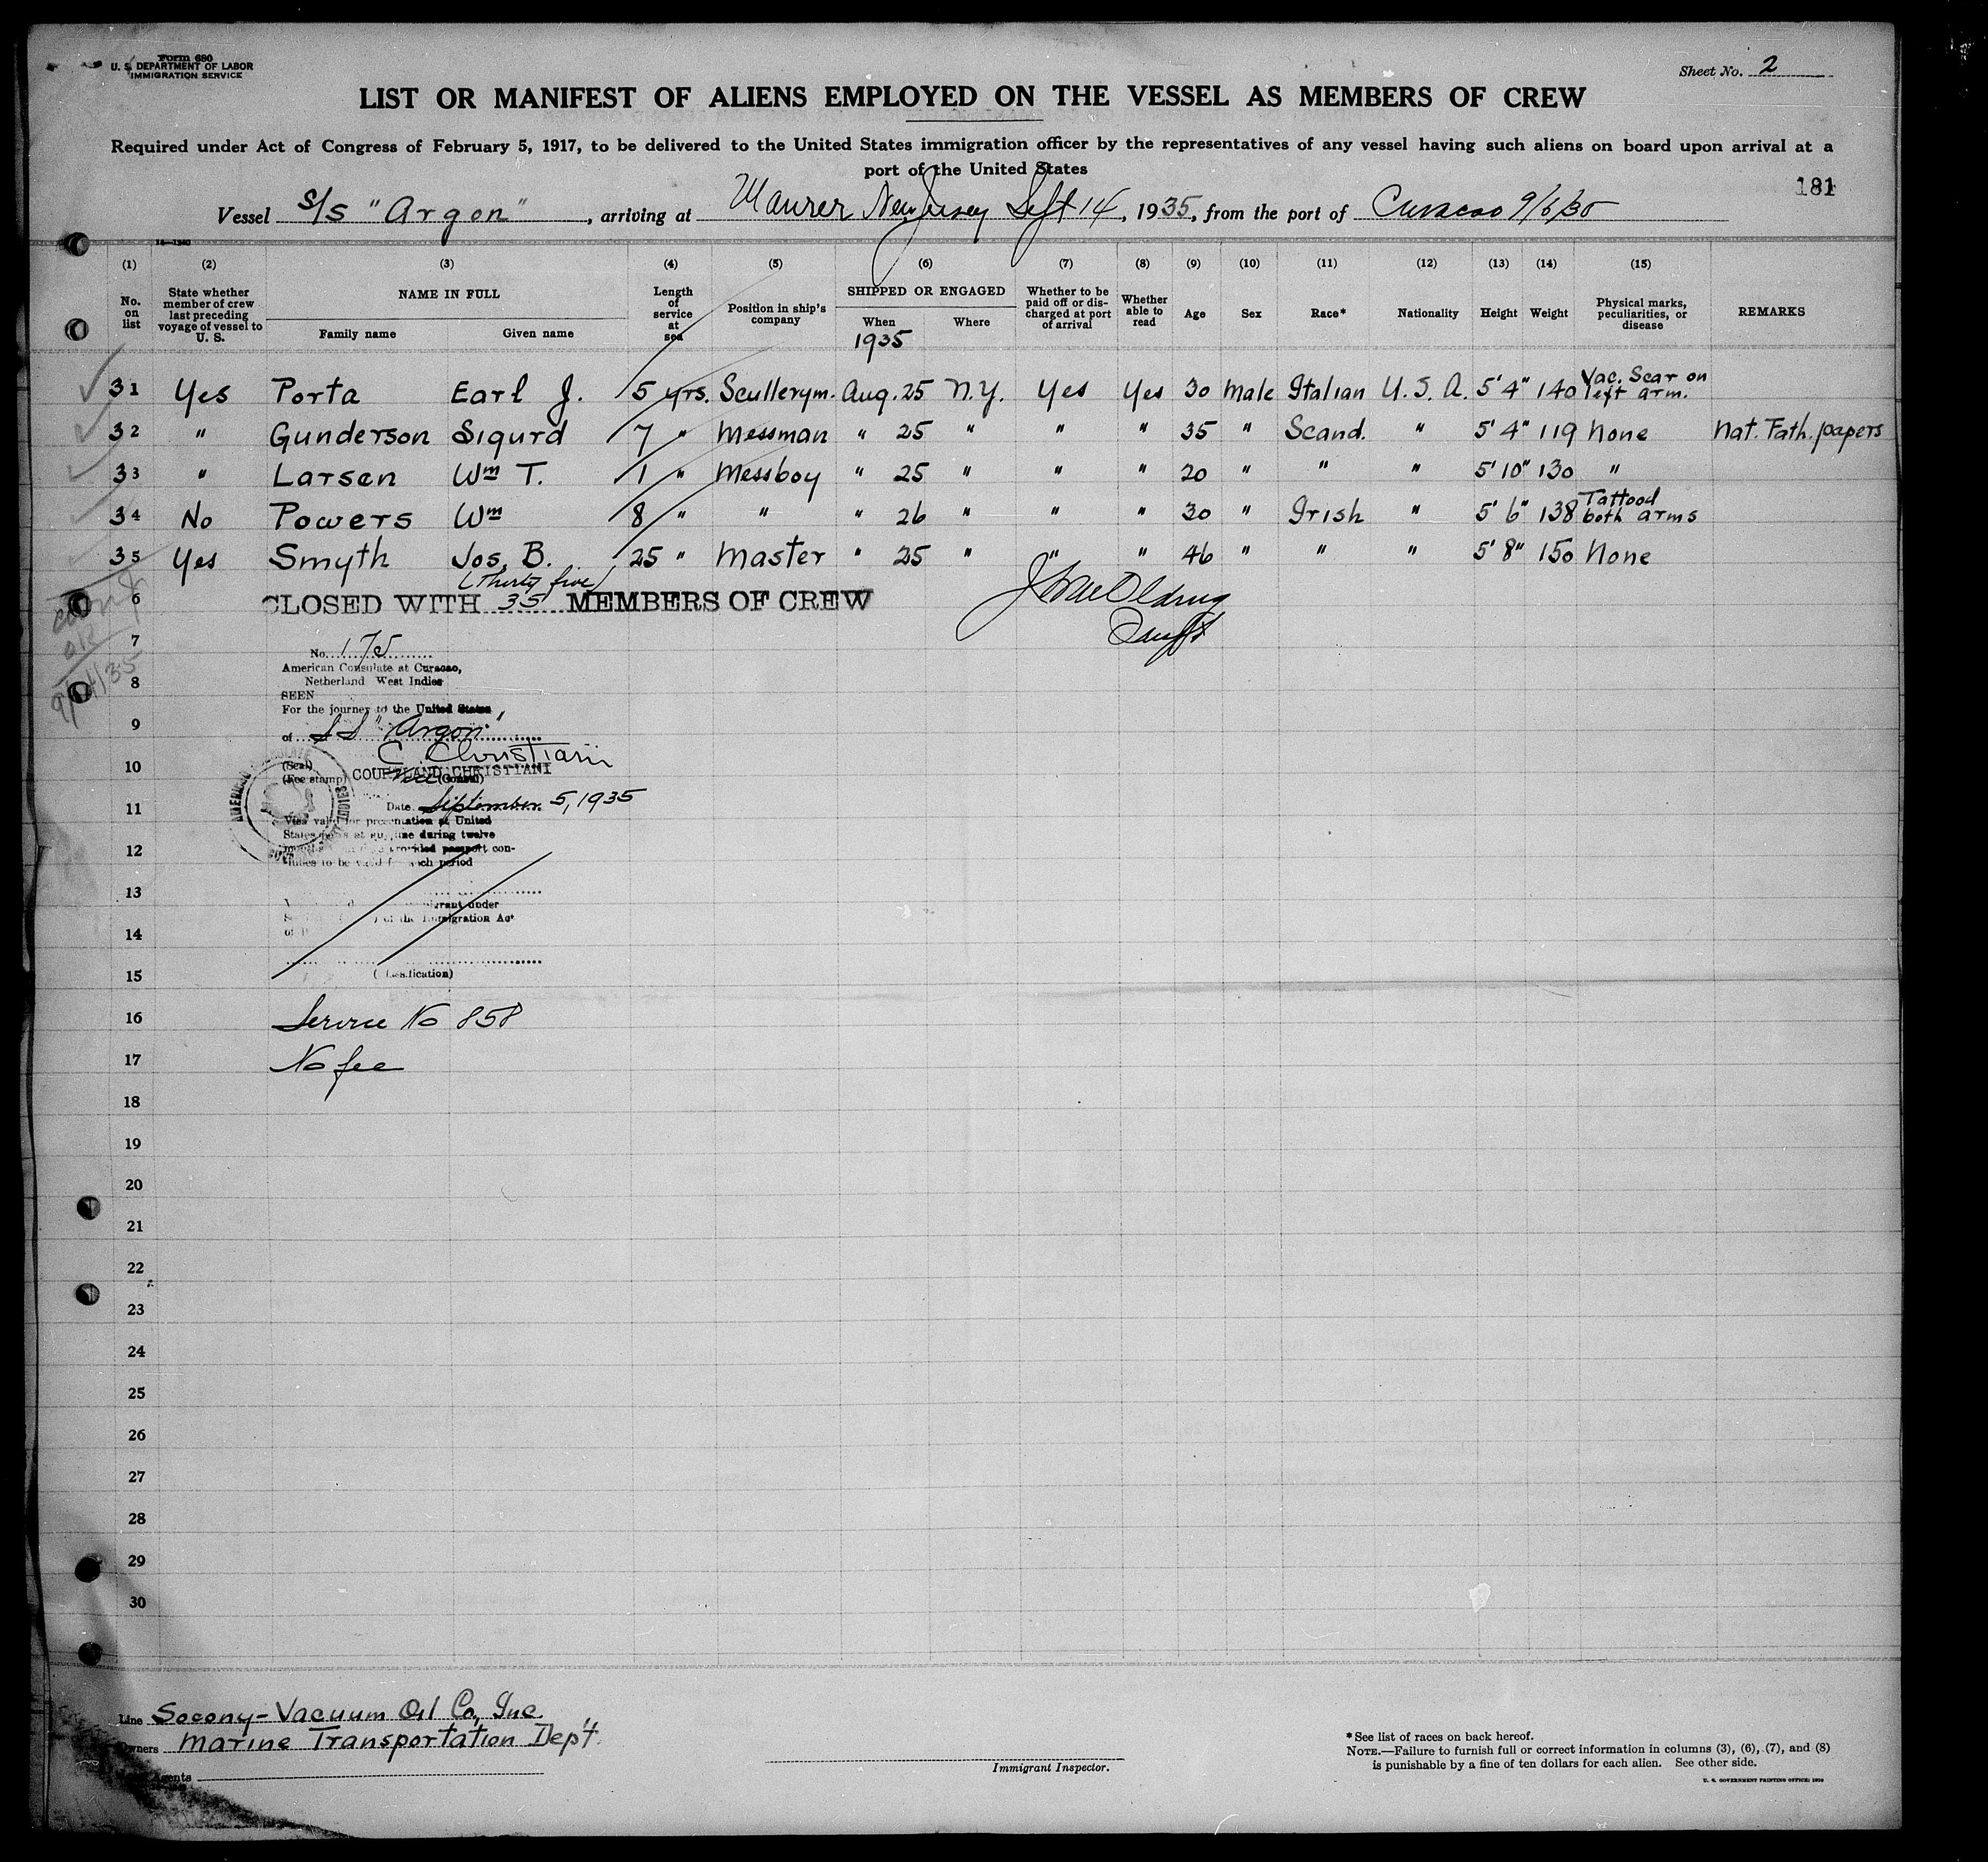 Form 680
U. S. DEPARTMENT OF LABOR
IMMIGRATION SERVICE
Sheet No. 2
LIST OR MANIFEST OF ALIENS EMPLOYED ON THE VESSEL AS MEMBERS OF CREW
Required under Act of Congress of February 5, 1917, to be delivered to the United States immigration officer by the representatives of any vessel having such aliens on board upon arrival at a
port of the United States
181
Vessel S/S "Argon", arriving at Maurer New Jersey Sept 14, 1935, from the port of Curacao 9/6/35
(1) (2) (3) (4) (5) (6) (7) (8) (9) (10) (11) (12) (13) (14) (15)
No. on list
State whether member of crew last preceding voyage of vessel to U. S.
NAME IN FULL
Family name Given name
Length of service at sea
Position in ship's company
SHIPPED OR ENGAGED
When Where
1935
Whether to be paid off or discharged at port of arrival
Whether able to read
Age
Sex
Race*
Nationality
Height
Weight
Physical marks, peculiarities, or disease
REMARKS
31 Yes Porta Earl J. 5 yrs. Scullerym. Aug. 25 N.Y. Yes Yes 30 Male Italian U.S.A. 5' 4" 140 Vac. Scar on left arm.
32 " Gunderson Sigurd 7 " Messman " 25 " " " 35 " Scand. " 5' 4" 119 None Nat. Fath. papers
33 " Larsen Wm T. 1 " Messboy " 25 " " " 20 " " " 5' 10" 130 "
34 No Powers Wm 8 " " " 26 " " " 30 " Irish " 5' 6" 138 Tattood both arms
35 Yes Smyth Jos. B. 25 " Master " 25 " " " 46 " " " 5' 8" 150 None
(Thirty five)
6 CLOSED WITH 35 MEMBERS OF CREW
7
No. 175
American Consulate at Curacao,
Netherland West Indies
8
SEEN
For the journey to the United States
9
of SS "Argon"
C. Christiani
10
(Seal)
COURTLAND CHRISTIANI
(Fee stamp) Vice (Consul)
11
Date September 5, 1935
Visa valid for presentation at United
States at during twelve
12
provided passport con-
tinues to be valid for such period
13
under
of the Immigration Act
14
of
15
16 Service No 858
17 No fee
18
19
20
21
22
23
24
25
26
27
28
29
30
Line Socony-Vacuum Oil Co., Inc.
Owners Marine Transportation Dep't.
Agents
Immigrant Inspector.
*See list of races on back hereof.
NOTE.—Failure to furnish full or correct information in columns (3), (6), (7), and (8)
is punishable by a fine of ten dollars for each alien. See other side.
U. S. GOVERNMENT PRINTING OFFICE: